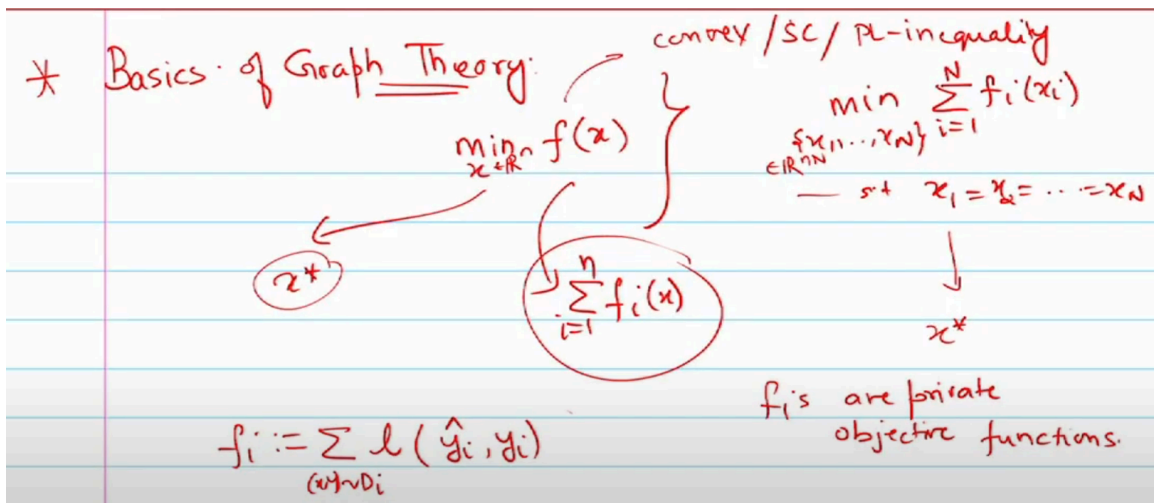 * Basics of Graph Theory:
convex / SC / PL-inequality
min f(x)
x ∈ ℝⁿ
x*
n
∑ f_i(x)
i=1
min ∑_{i=1}^{N} f_i(x_i)
{x_1, ..., x_N}
∈ ℝ^{nN}
s.t x_1 = x_2 = ... = x_N
x*
f_i's are private
objective functions.
f_i := ∑ l(ŷ_i, y_i)
(x,y)~D_i